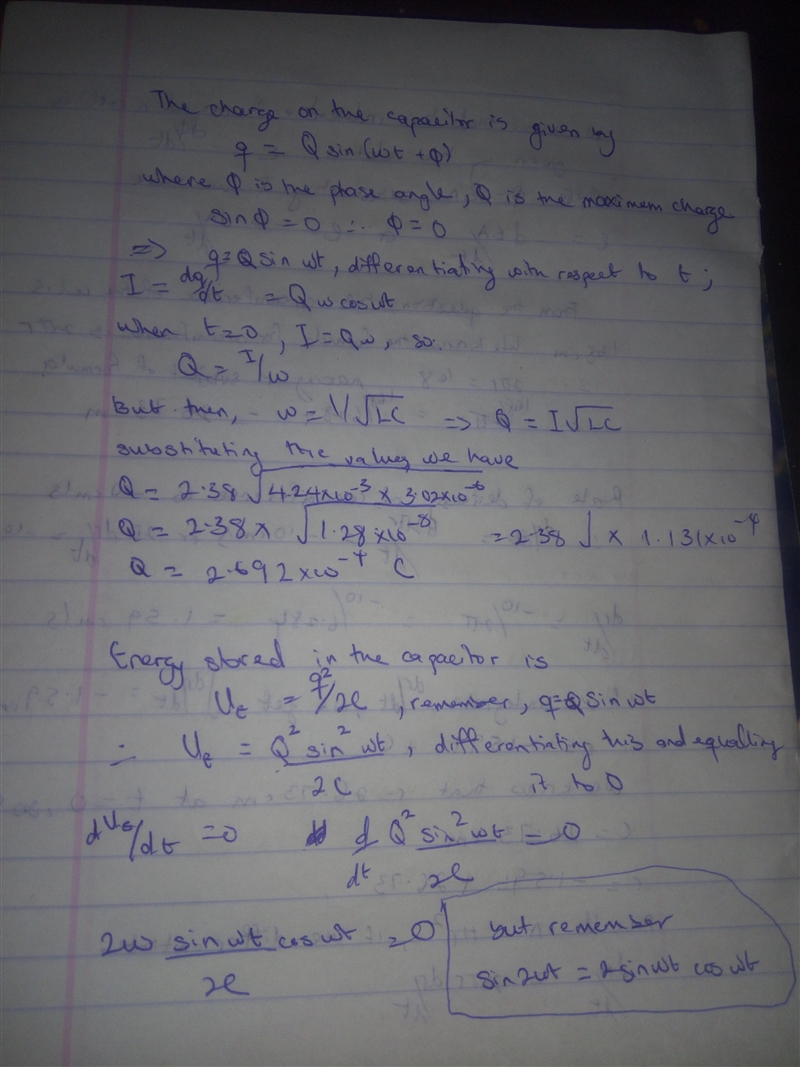 The charge on the capacitor is given by
q = Q sin(wt + Φ)
where Φ is the phase angle, Q is the maximum charge
sin Φ = 0 ∴ Φ = 0
=> q = Q sin wt, differentiating with respect to t;
I = dq/dt = Q w cos wt
when t=0, I = Qw, so.
Q = I/w
But then, w = 1/√LC => Q = I√LC
substituting the values we have
Q = 2.38 √4.24x10⁻³ x 3.02x10⁻⁶
Q = 2.38 x √1.28x10⁻⁸ = 2.38 √ x 1.131x10⁻⁴
Q = 2.692x10⁻⁴ C
Energy stored in the capacitor is
U_E = q²/2C, remember, q=Q sin wt
∴ U_E = Q² sin² wt / 2C, differentiating this and equalling
it to 0
dU_E/dt = 0 d/dt Q² sin² wt / 2C = 0
2w sin wt cos wt / 2C = 0
but remember
sin 2wt = 2 sin wt cos wt